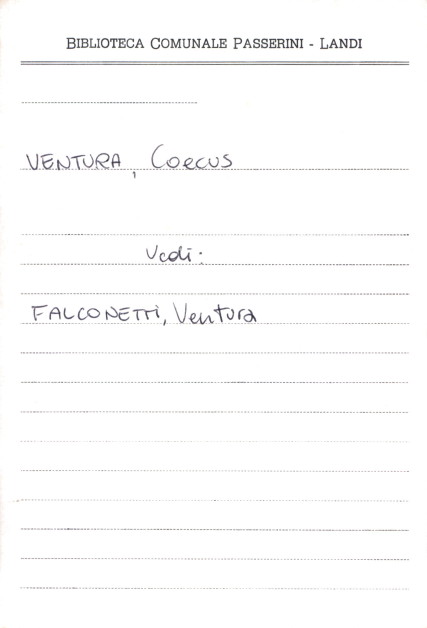 BIBLIOTECA COMUNALE PASSERINI - LANDI
VENTURA, Coecus
Vedi:
FALCONETTI, Ventura